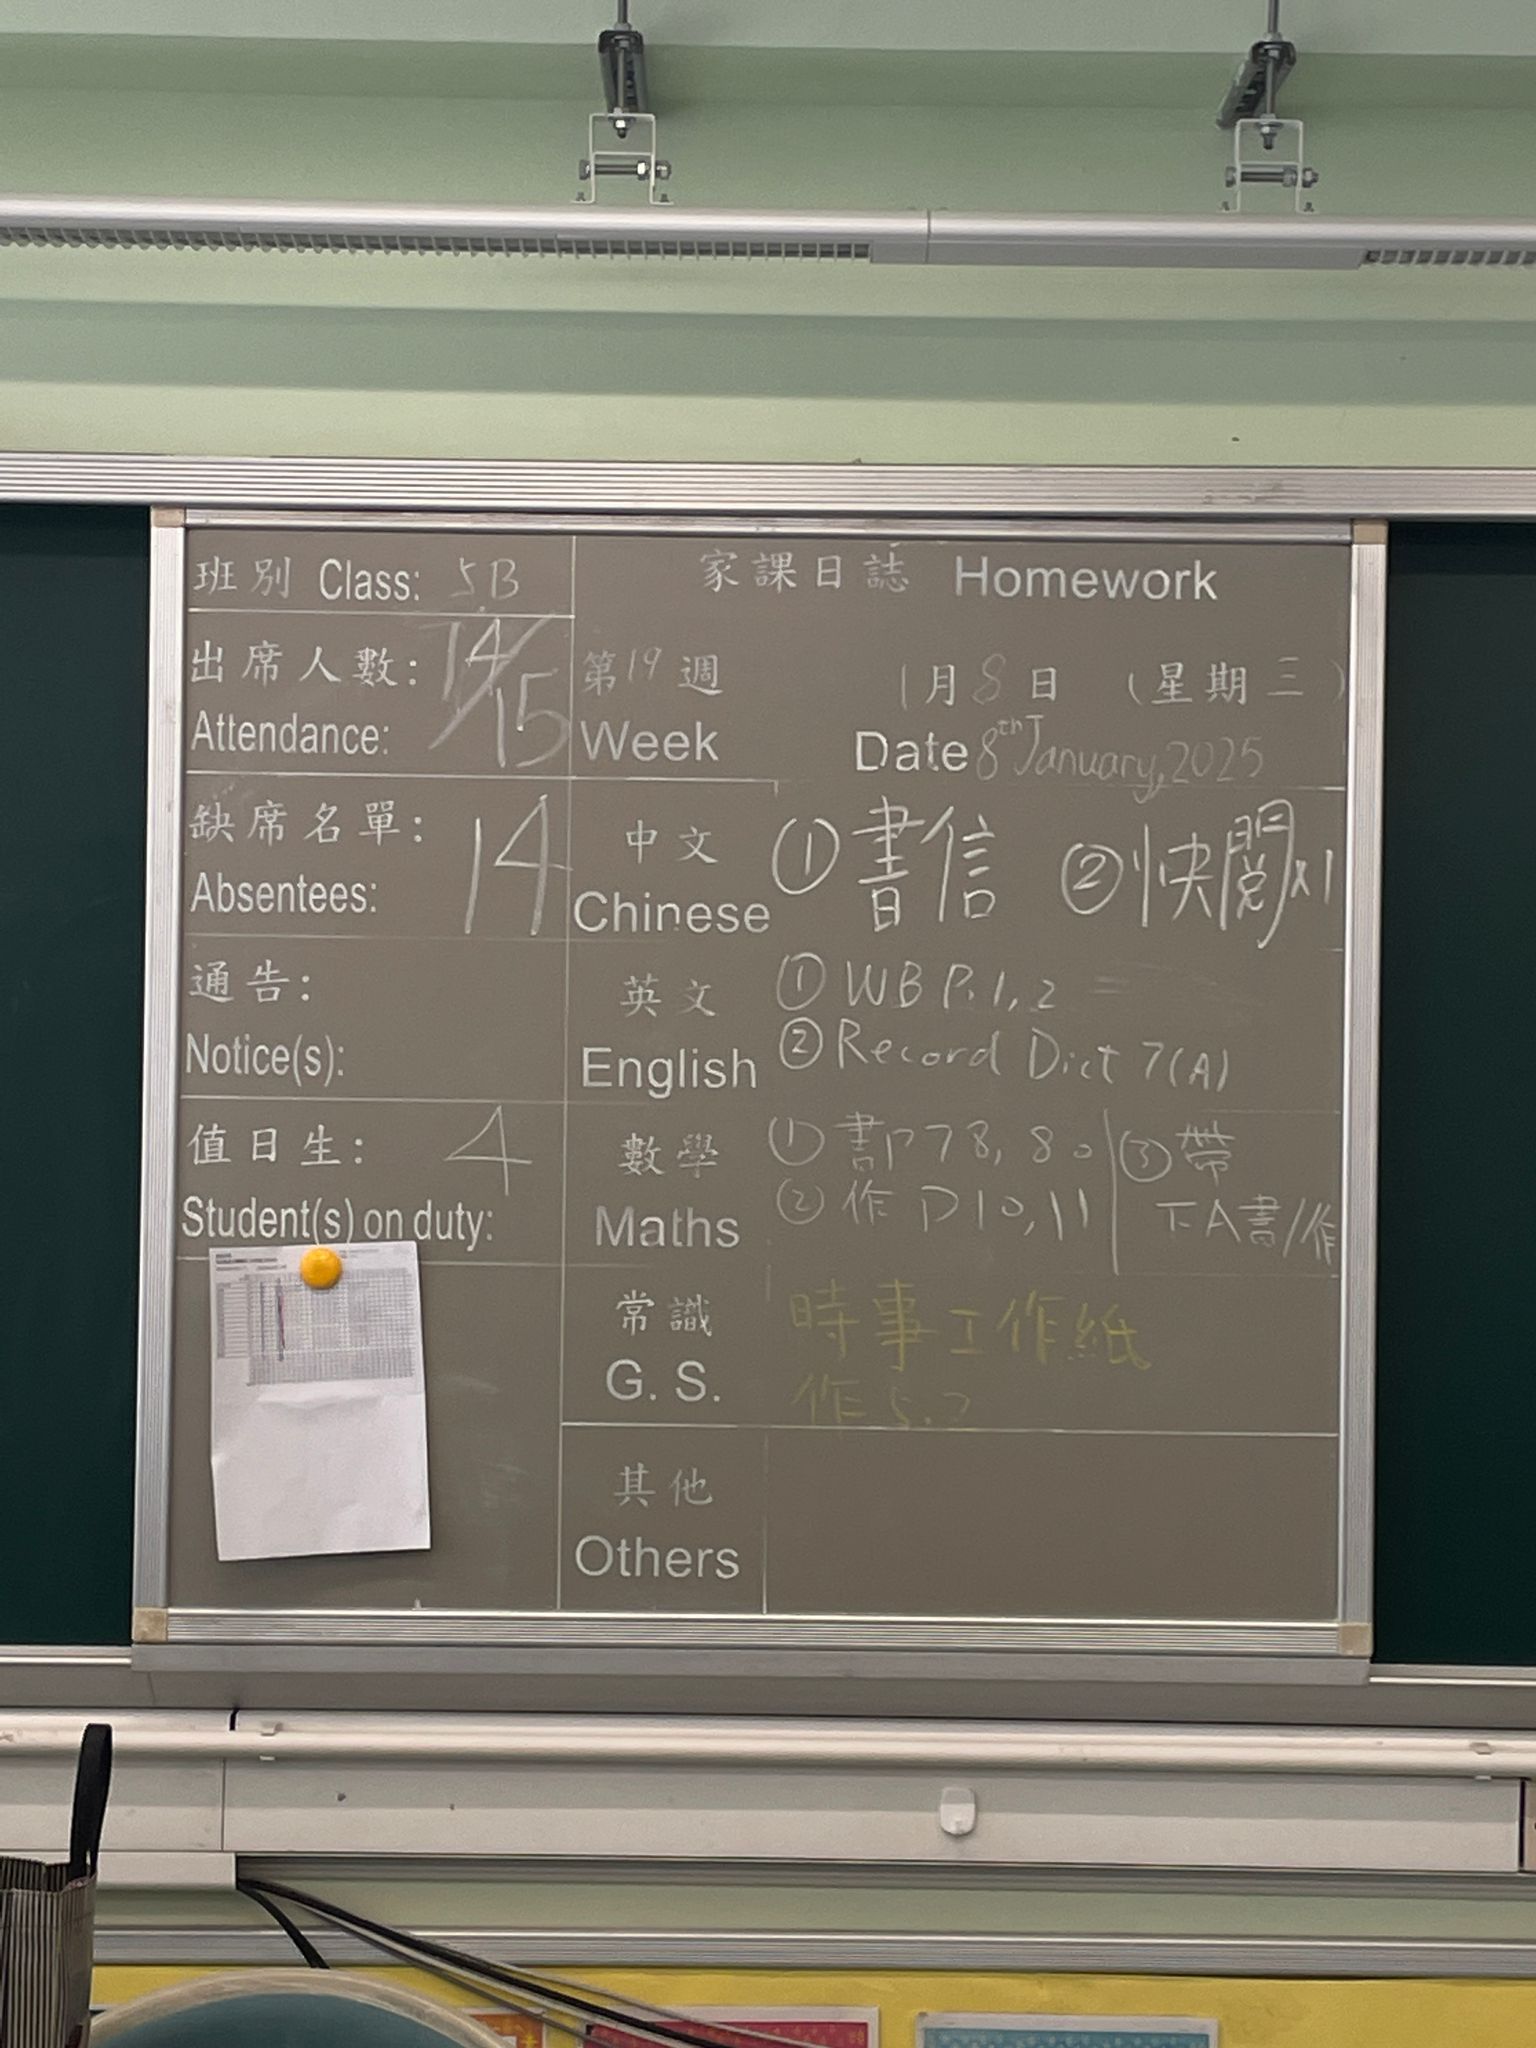 班別 Class: 5B
出席人數: 14/15
Attendance:
缺席名單: 14
Absentees:
通告:
Notice(s):
值日生: 4
Student(s) on duty:
家課日誌 Homework
第19週 1月8日 (星期三)
Week Date 8th January, 2025
中文 ①書信 ②快閱x1
Chinese
英文 ①WB P.1,2
English ②Record Dict 7(A)
數學 ①書P78,80 ③帶
Maths ②作P10,11 下A書/作
常識 時事工作紙
G. S. 作5.2
其他
Others